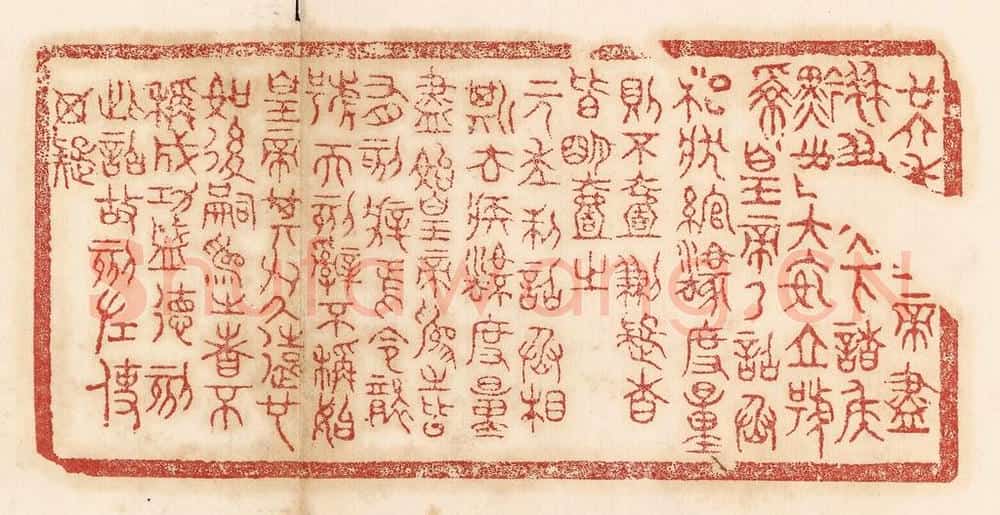 廿六年皇帝盡
并兼天下諸侯
黔首大安立號
為皇帝乃詔丞
相狀綰灋度量
則不壹歉疑者
皆明壹之
元年制詔丞相
斯去疾灋度量
盡始皇帝為之皆
有刻辭焉今襲
號而刻辭不稱始
皇帝其於久遠也
如後嗣為之者不
稱成功盛德刻
此詔故刻左使
毋疑
Shufawang.CN